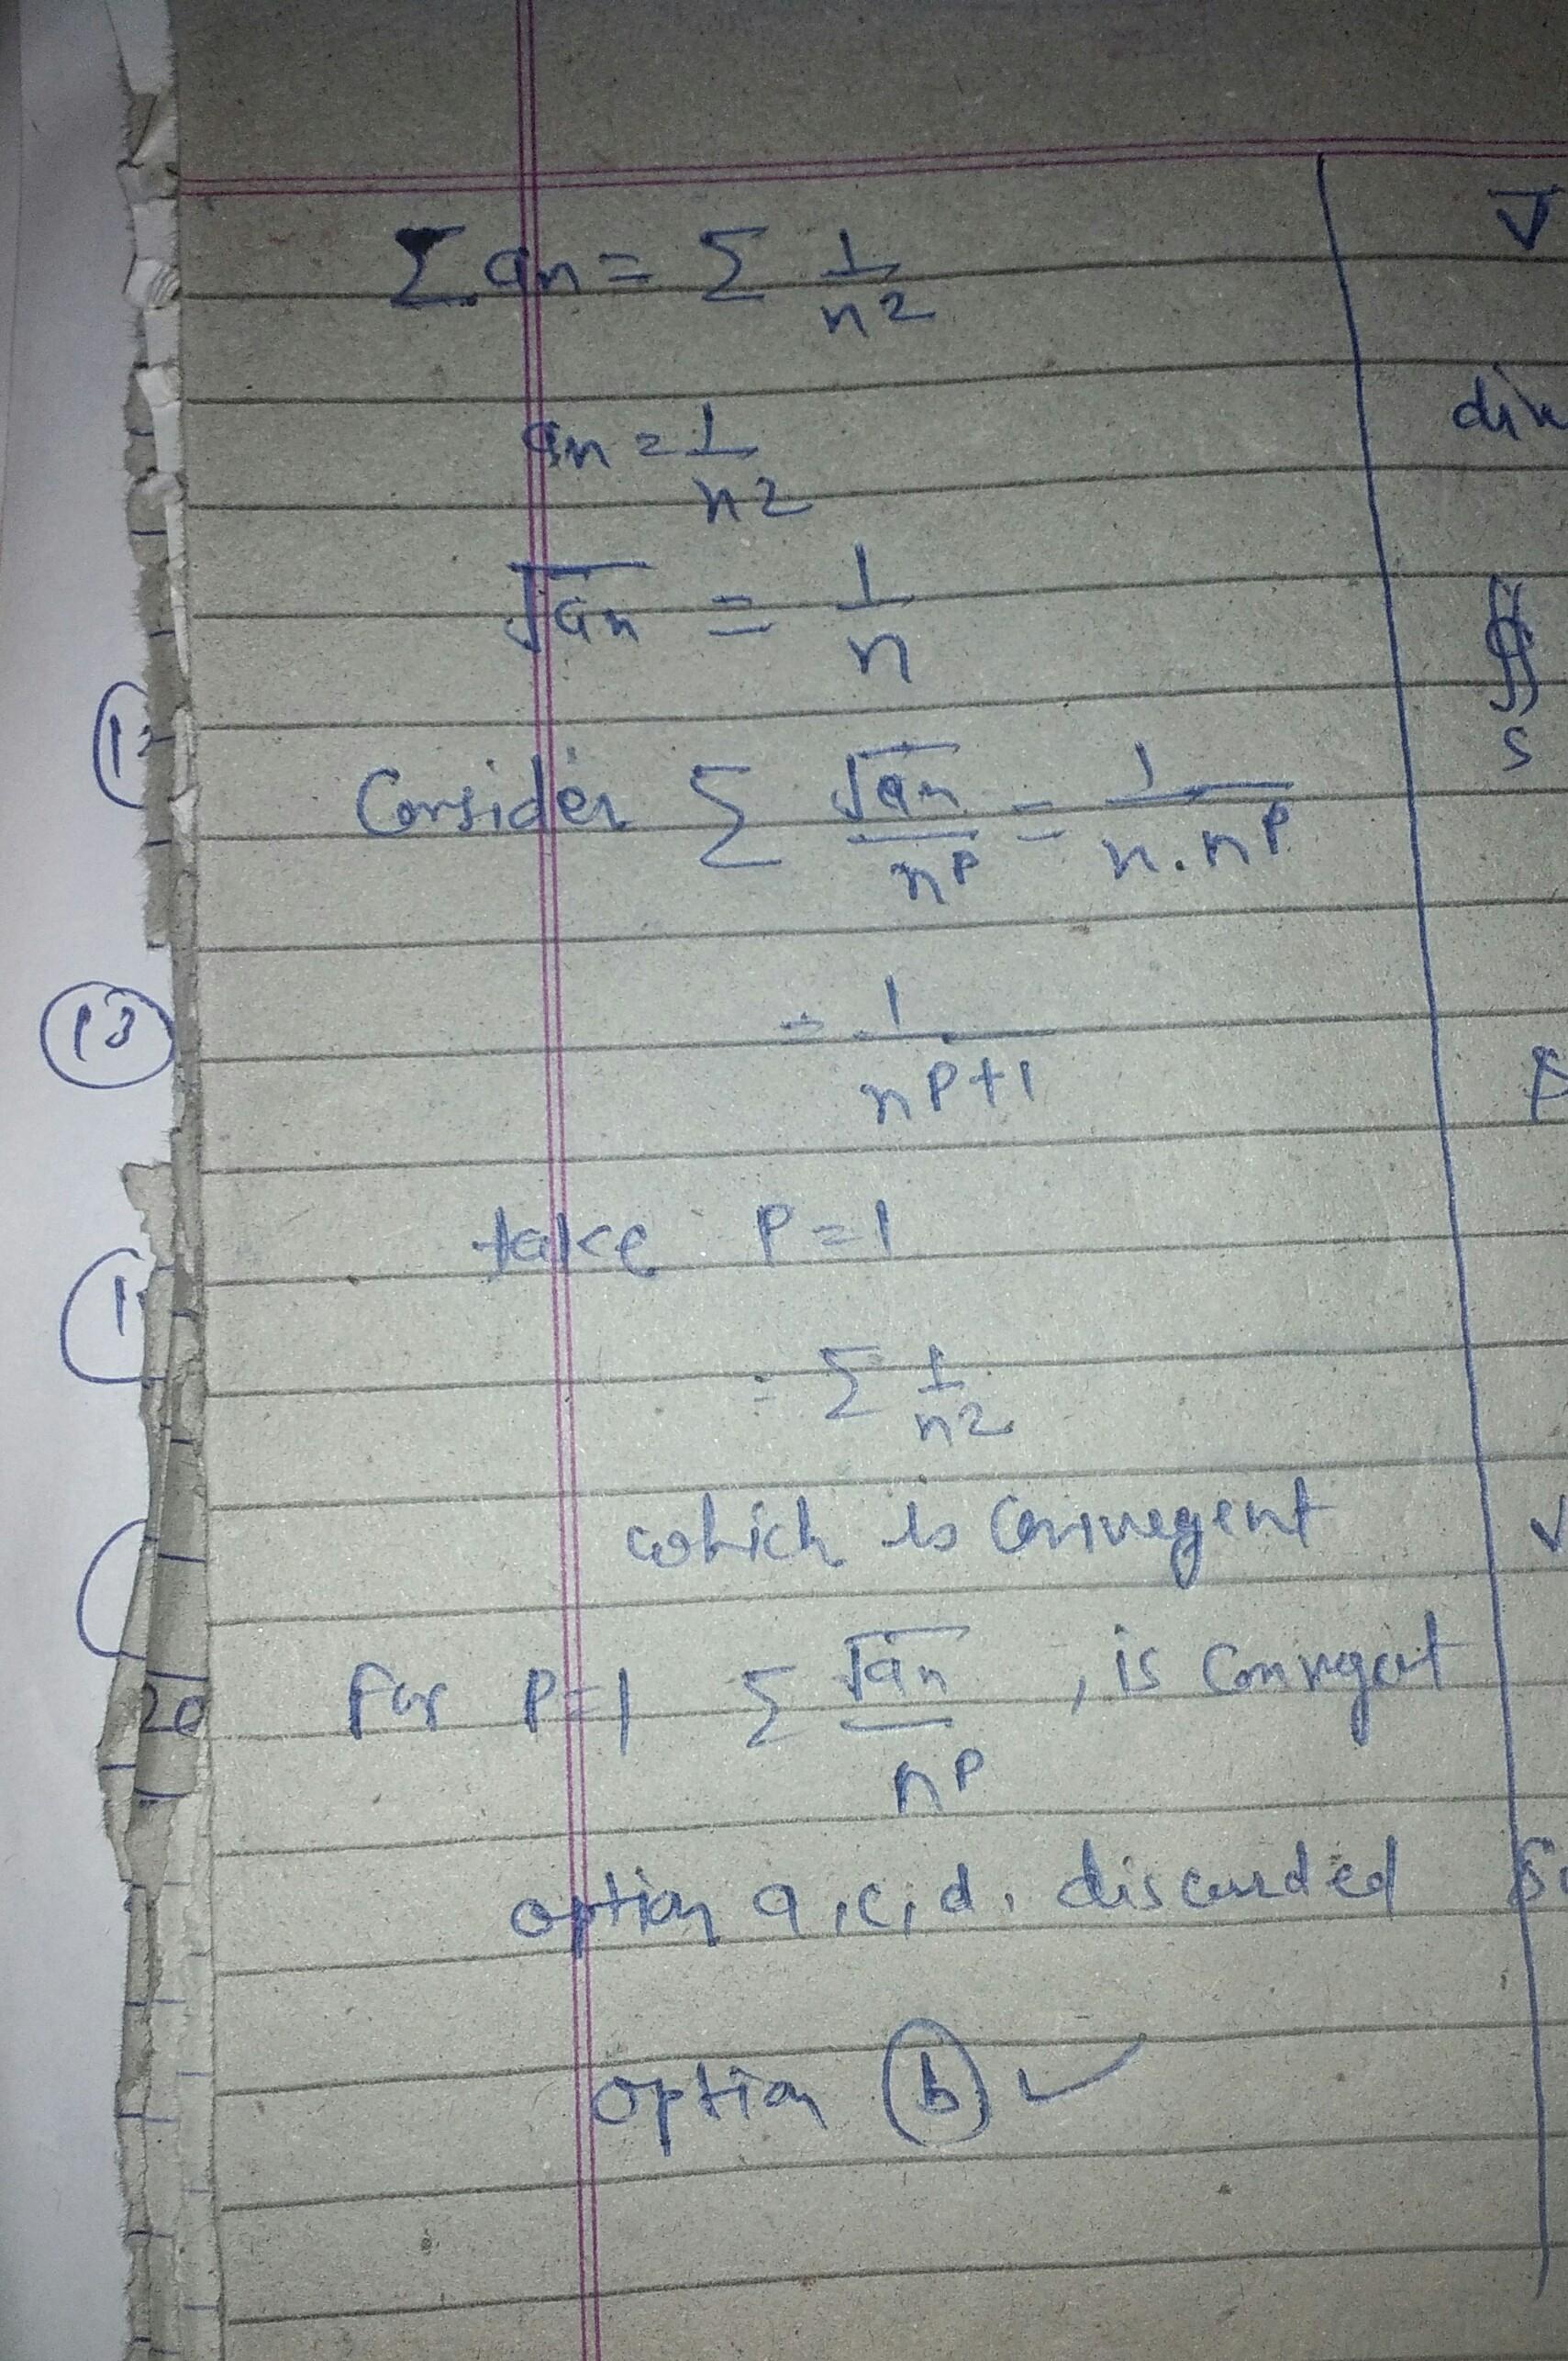 Σ an = Σ 1/n2
an = 1/n2
√an = 1/n
Consider Σ √an/nP = 1/n.nP
= 1/nP+1
take P=1
= Σ 1/n2
which is Convegent
for P=1 Σ √an/nP , is Convegent
option a,c,d. discarded
option (b) ✓
13
20
∯
S